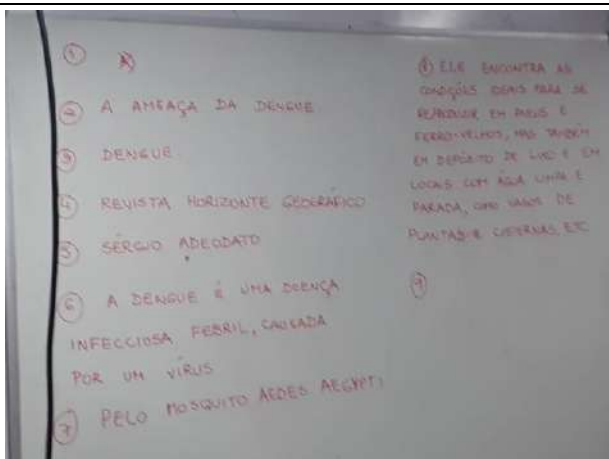 ① A)
② A AMEAÇA DA DENGUE
③ DENGUE
④ REVISTA HORIZONTE GEOGRÁFICO
⑤ SÉRGIO ADEODATO
⑥ A DENGUE É UMA DOENÇA
INFECCIOSA, FEBRIL, CAUSADA
POR UM VÍRUS
⑦ PELO MOSQUITO AEDES AEGYPTI
⑧ ELE ENCONTRA AS
CONDIÇÕES IDEAIS PARA SE
REPRODUZIR EM PNEUS E
FERRO-VELHOS, MAS TAMBÉM
EM DEPÓSITO DE LIXO E EM
LOCAIS COM ÁGUA LIMPA E
PARADA, COMO VASOS DE
PLANTAS E CISTERNAS, ETC
⑨